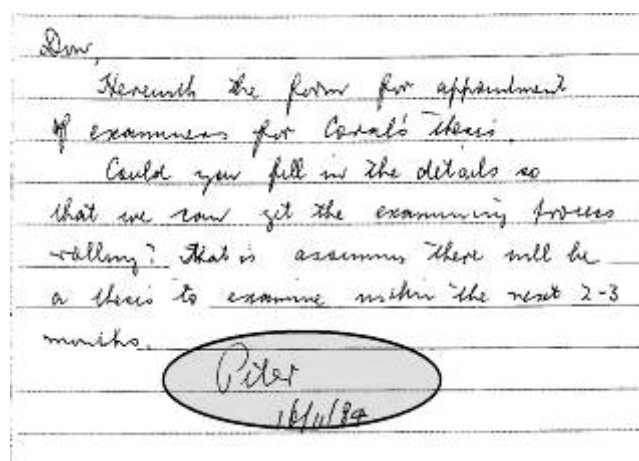 Don,
Herewith the form for appointment
of examiners for Coral's thesis.
Could you fill in the details so
that we can get the examining process
rolling? That is assuming there will be
a thesis to examine within the next 2-3
months.
Peter
16/11/84